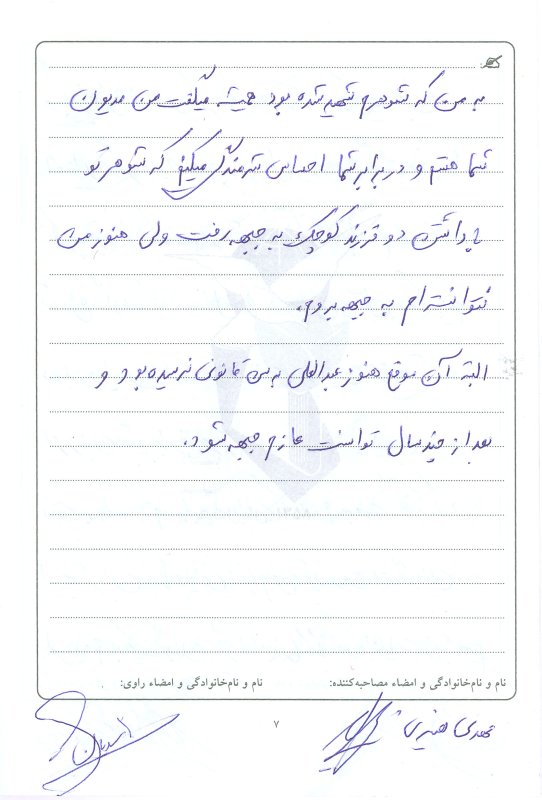 به من که شوهرم شهید شده بود همیشه میگفت من مدیون
شما هستم و در برابر شما احساس شرمندگی میکنم که شوهر تو
با داشتن دو فرزند کوچک به جبهه رفت ولی هنوز من
نتوانسته‌ام به جبهه بروم.
البته آن موقع هنوز عبدالعلی به سن قانونی نرسیده بود و
بعد از چند سال توانست عازم جبهه شود.
نام و نام‌خانوادگی و امضاء مصاحبه‌کننده:
نام و نام‌خانوادگی و امضاء راوی:
مهدی
۷